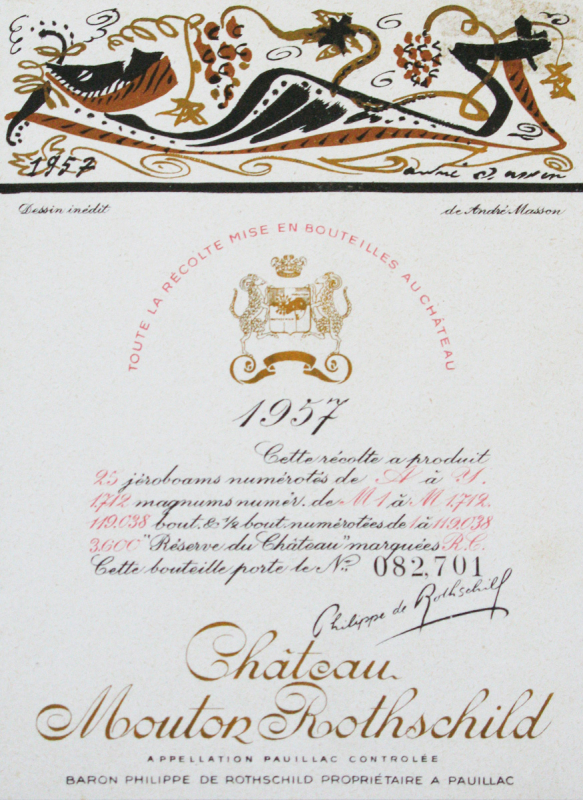 1957
André Masson
Dessin inédit
de André Masson
TOUTE LA RÉCOLTE MISE EN BOUTEILLES AU CHÂTEAU
1957
Cette récolte a produit
25 jéroboams numérotés de A à Y.
1.712 magnums numér. de M 1 à M 1.712.
119.038 bout. & ½ bout. numérotées de 1 à 119.038
3.000 "Réserve du Château" marquées R.C.
Cette bouteille porte le No. 082,701
Philippe de Rothschild
Château
Mouton Rothschild
APPELLATION PAUILLAC CONTROLÉE
BARON PHILIPPE DE ROTHSCHILD PROPRIÉTAIRE A PAUILLAC